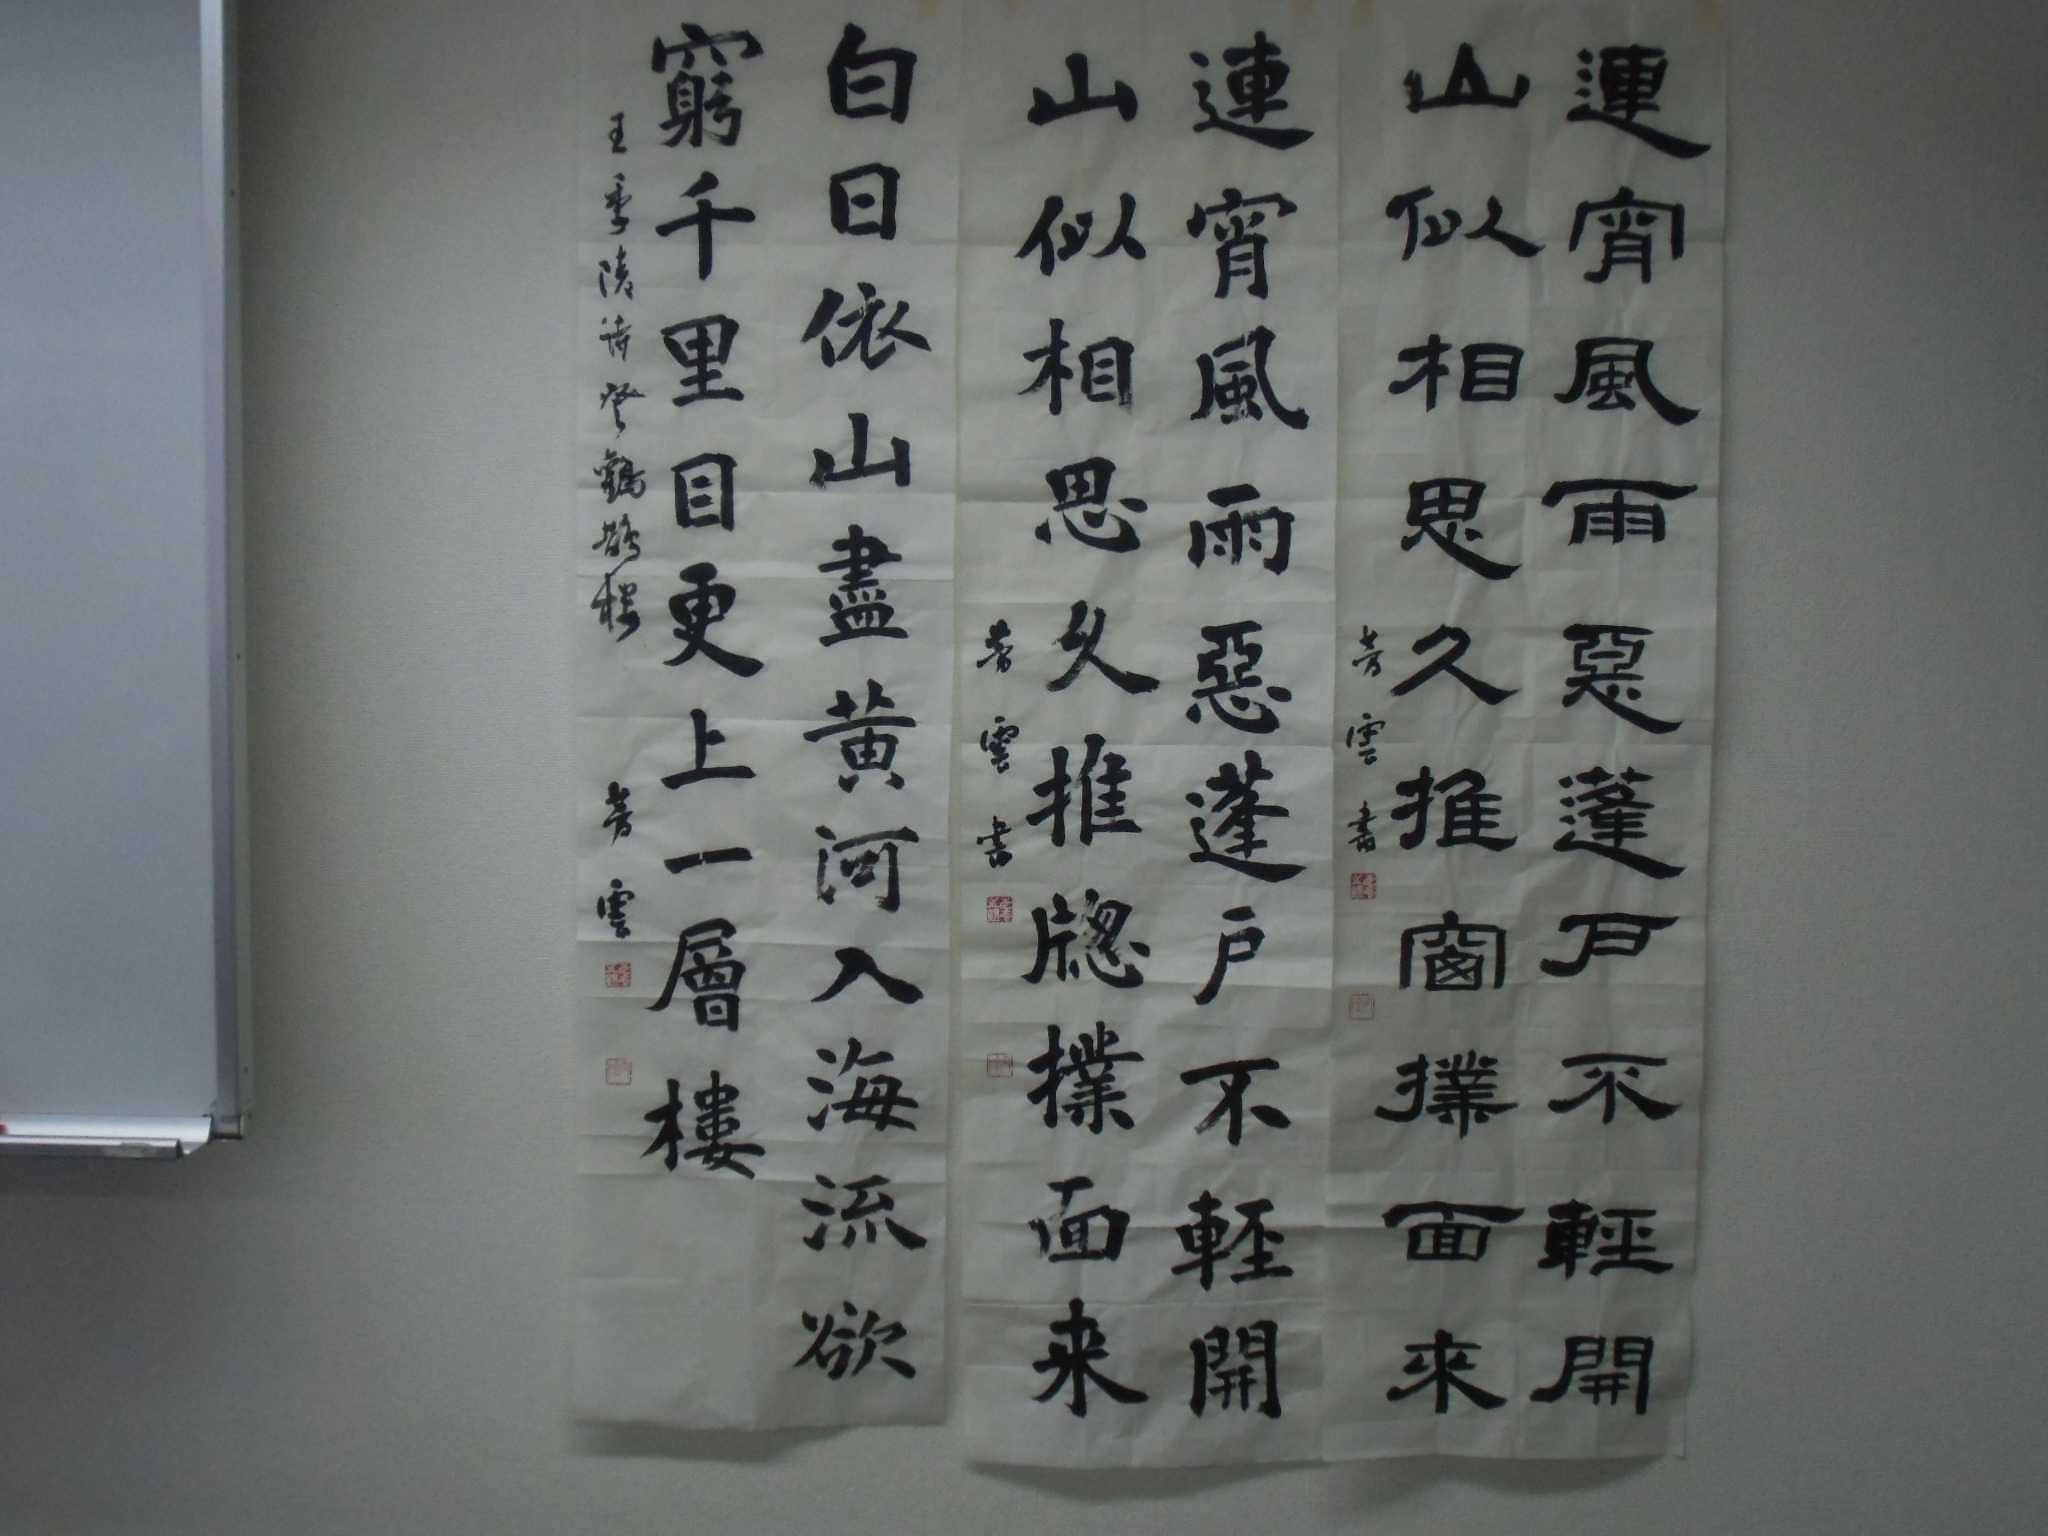 連宵風雨惡蓬戸不輕開
山似相思久推窗撲面來
芳雲書
連宵風雨惡蓬戸不輕開
山似相思久推牕撲面来
芳雲書
白日依山盡黄河入海流欲
窮千里目更上一層樓
王季陵詩登鸛鵲楼
芳雲